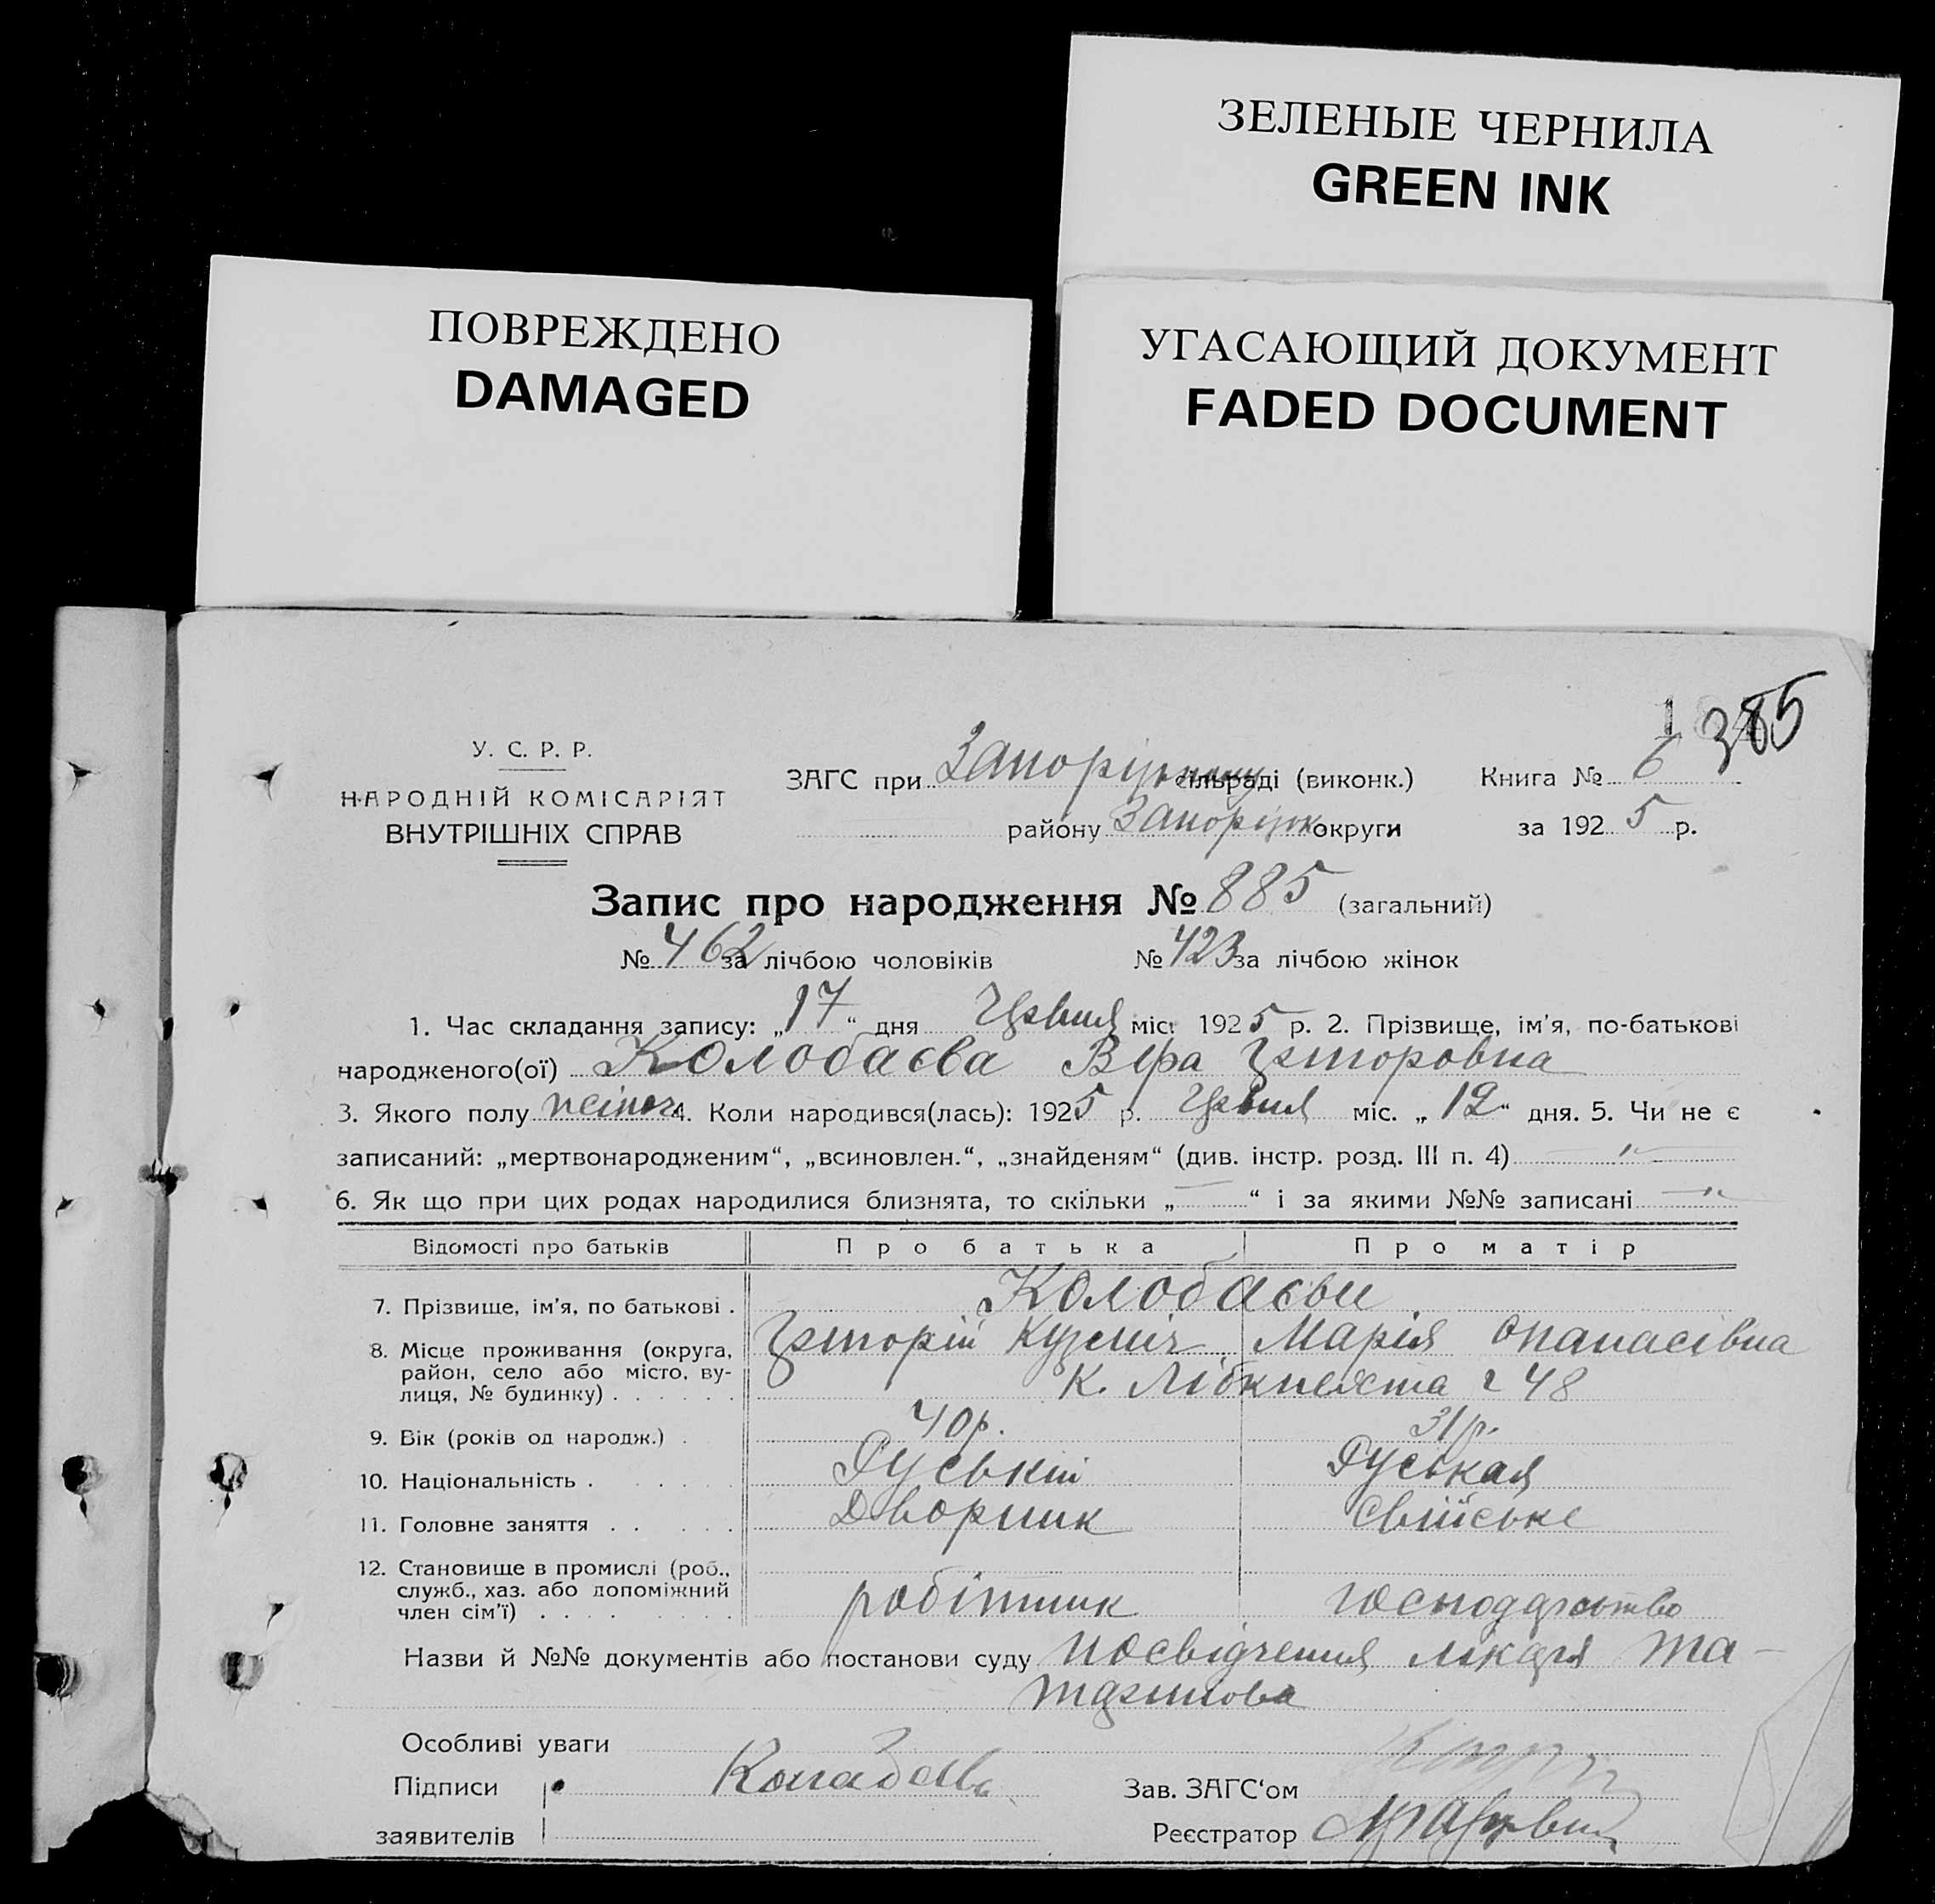 ЗЕЛЕНЫЕ ЧЕРНИЛА
GREEN INK
ПОВРЕЖДЕНО
DAMAGED
УГАСАЮЩИЙ ДОКУМЕНТ
FADED DOCUMENT
385
У. С. Р. Р.
НАРОДНІЙ КОМІСАРІЯТ
ВНУТРІШНІХ СПРАВ
ЗАГС при сільраді (виконк.) Книга № 6
району Запорізьк округи за 1925 р.
Запис про народження № 885 (загальний)
№ 462 за лічбою чоловіків № 423 за лічбою жінок
1. Час складання запису: „17“ дня Червня міс. 1925 р. 2. Прізвище, ім'я, по-батькові
народженого(ої) Колобаєва Віра
3. Якого полу жіноч 4. Коли народився(лась): 1925 р. Червня міс. „12“ дня. 5. Чи не є
записаний: „мертвонародженим“, „всиновлен.“, „знайденям“ (див. інстр. розд. III п. 4) —"—
6. Як що при цих родах народилися близнята, то скільки „—“ і за якими №№ записані —"—
Відомості про батьків Про батька Про матір
7. Прізвище, ім'я, по батькові . Колобаєви
8. Місце проживання (округа, район, село або місто, вулиця, № будинку) Кузьміч Марія Опанасівна
К. Лібкнехта 48
9. Вік (років од народж.) . 40р. 31р.
10. Національність . Руській Руськая
11. Головне заняття . . Дворник Свійське
12. Становище в промислі (роб., служб., хаз. або допоміжний член сім'ї) робітник господарство
Назви й №№ документів або постанови суду посвідчення лікаря
Особливі уваги
Підписи
заявителів
Зав. ЗАГС'ом
Реєстратор